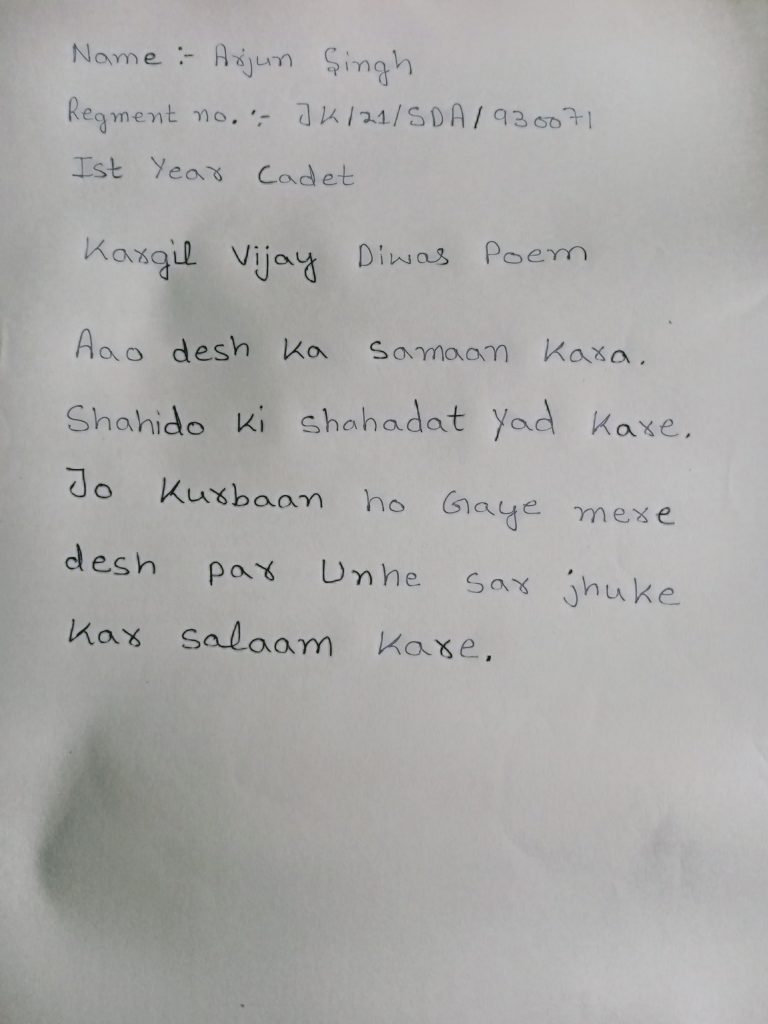 Name :- Arjun Singh
Regment no. :- JK/21/SDA/930071
Ist Year Cadet
Kargil Vijay Diwas Poem
Aao desh ka samaan kara.
Shahido ki shahadat yad kare.
Jo Kurbaan ho Gaye mere
desh par Unhe sar jhuke
kar salaam kare.